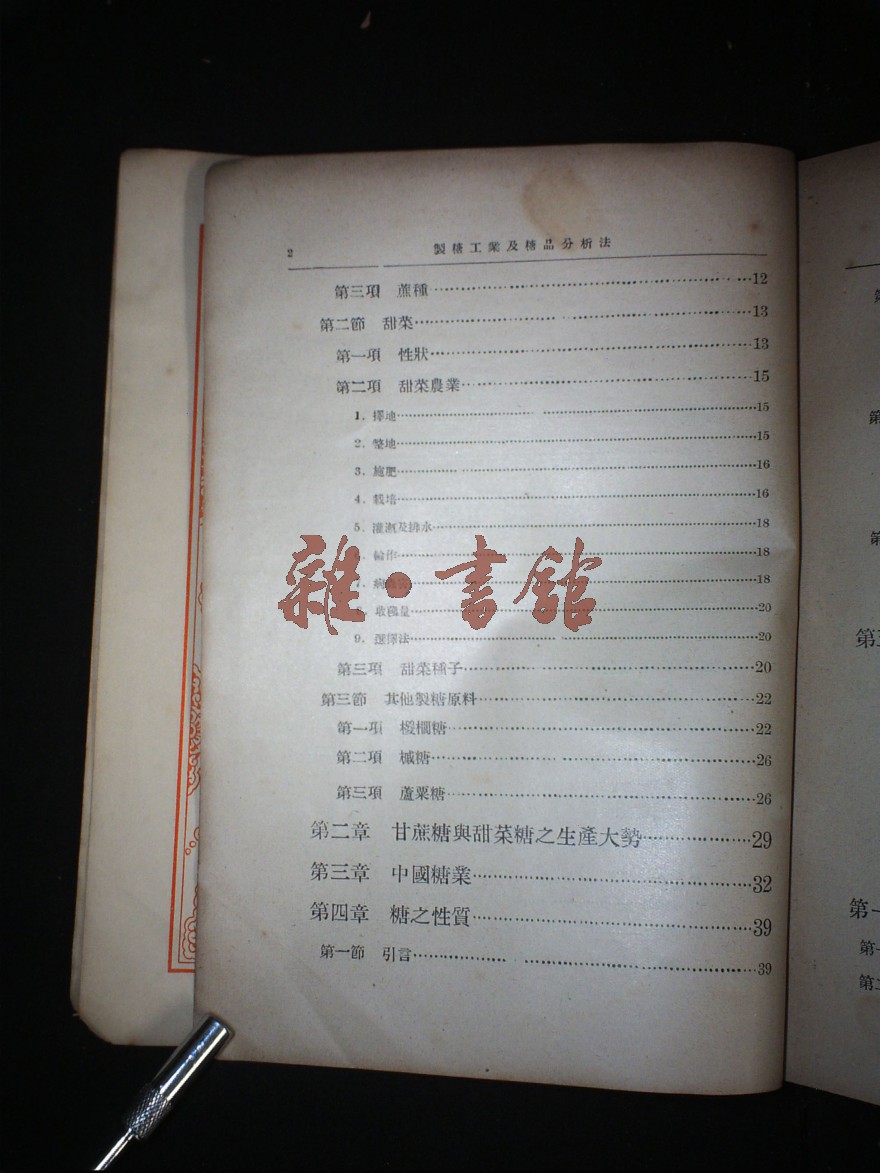 2 製糖工業及糖品分析法
第三項 蔗種……12
第二節 甜菜……13
第一項 性狀……13
第二項 甜菜農業……15
1. 擇地……15
2. 整地……15
3. 施肥……16
4. 栽培……16
5. 灌溉及排水……18
6. 輪作……18
7. 病……18
8. 收穫量……20
9. 選擇法……20
第三項 甜菜種子……20
第三節 其他製糖原料……22
第一項 椶櫚糖……22
第二項 槭糖……26
第三項 蘆粟糖……26
第二章 甘蔗糖與甜菜糖之生產大勢……29
第三章 中國糖業……32
第四章 糖之性質……39
第一節 引言……39
雜·書館